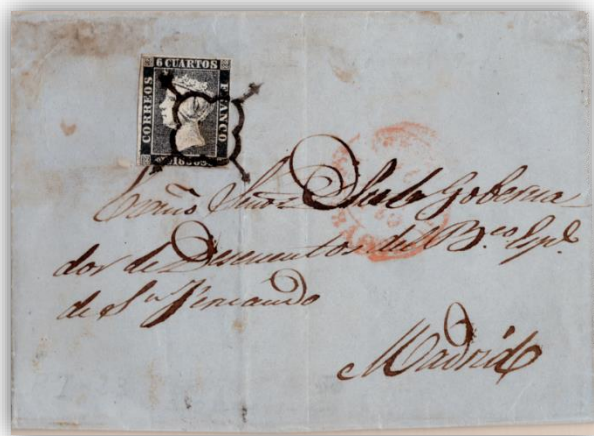 6 CUARTOS
CORREOS
FRANCO
Exmo Señor Sub Goberna
dor de Descuentos del B.co Espl.
de Sn. Fernando
Madrid